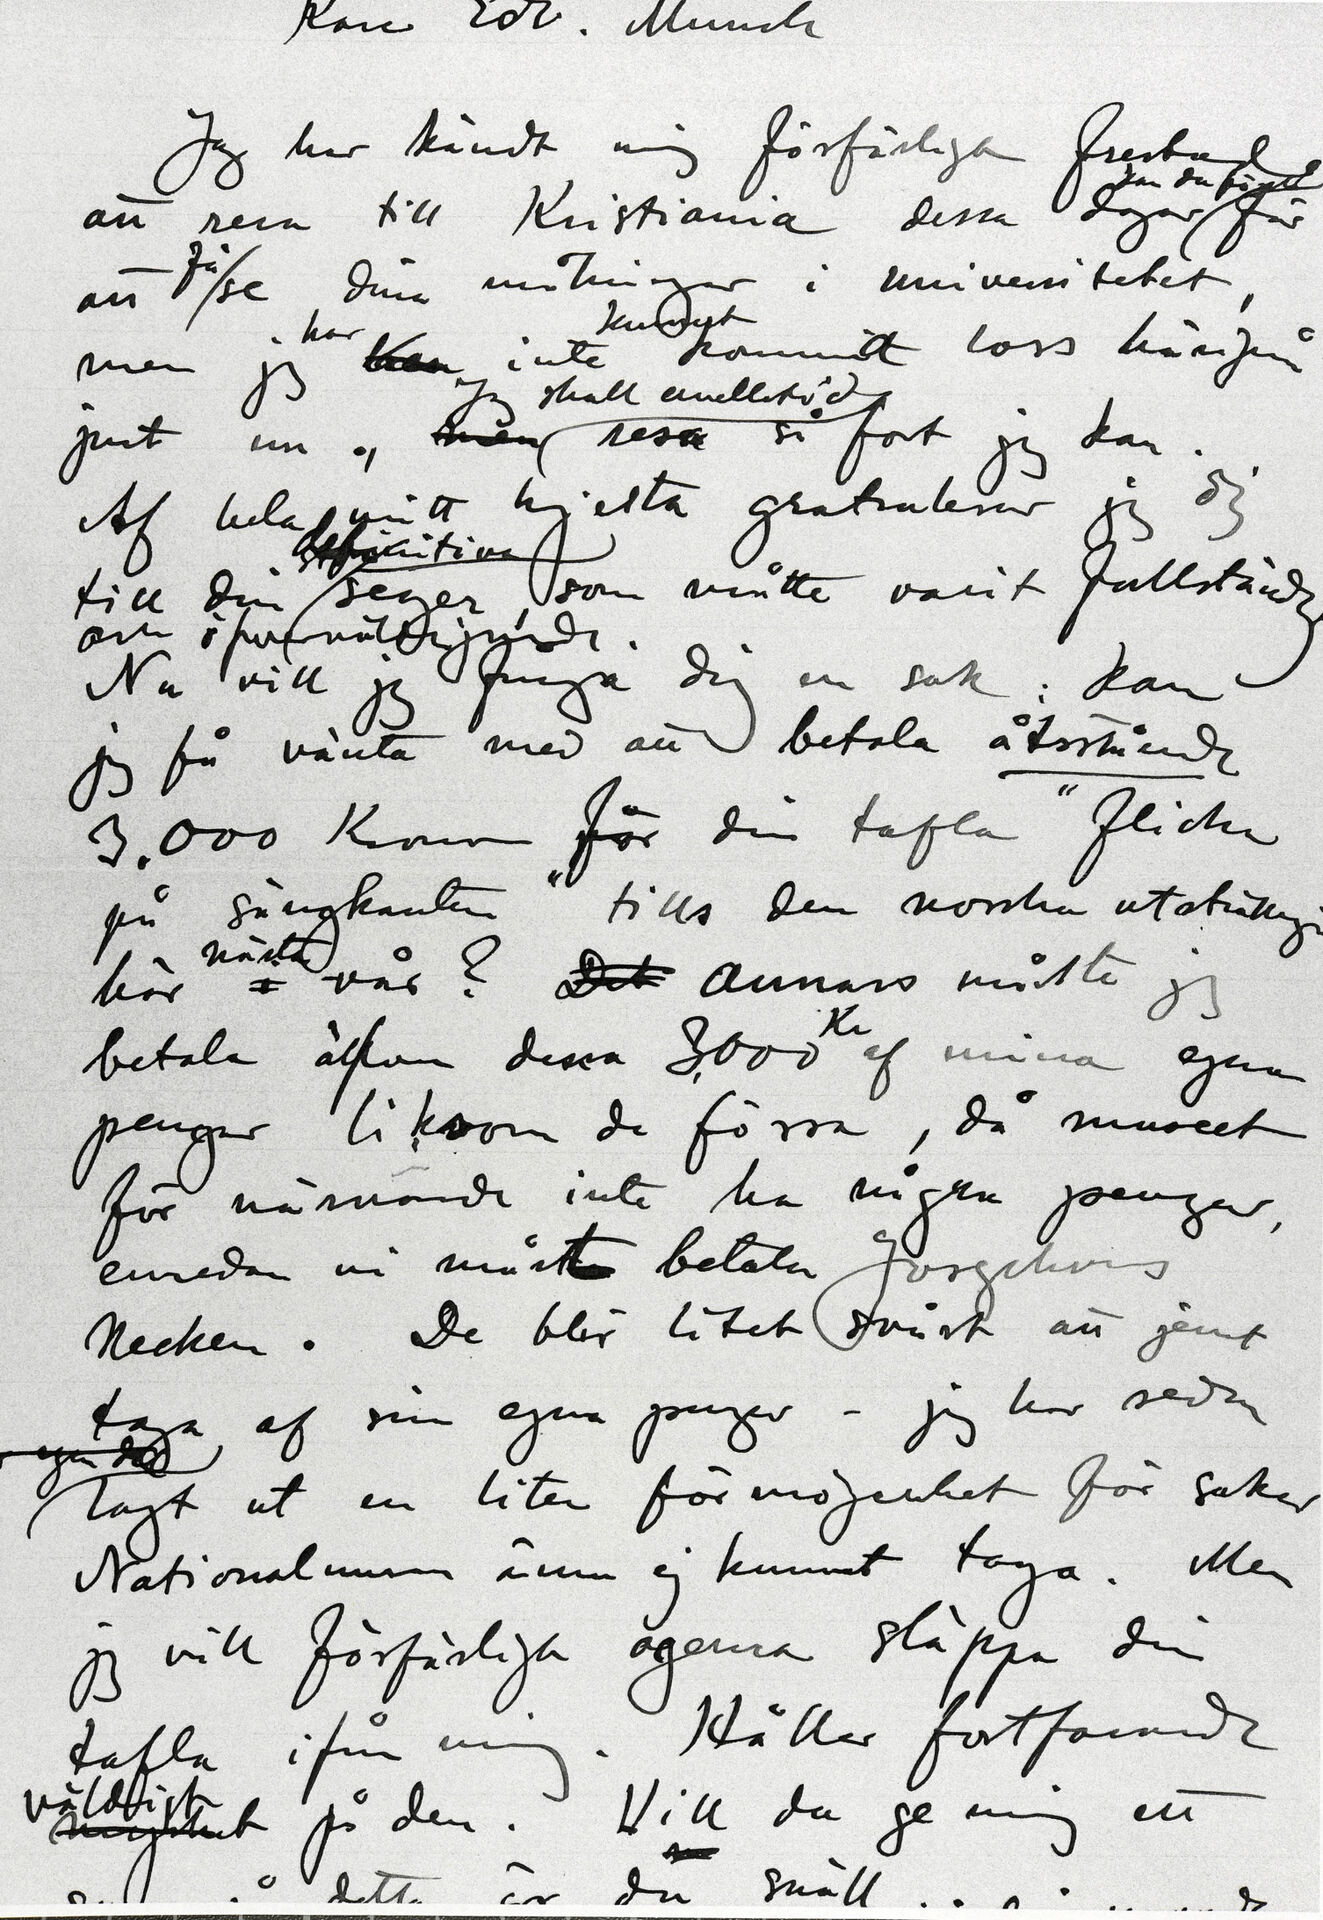 Käre Edv. Munch
Jag har kändt mig förfärligt frestad
kan du förstå
att resa till Kristiania dessa dagar för
att få se dina målningar i universitetet,
men jag har inte kunnat kommit loss härifrån
jag skall emellertid
just nu, men resa så fort jag kan.
Af hela mitt hjerta gratulerar jag dig
definitiva
till din seger, som måtte varit fullständig
och öfverväldigande.
Nu vill jag fråga dig en sak: kan
jag få vänta med att betala återstående
3,000 Kronor för din tafla "Flicka
på sängkanten" tills den norska utställningen
här nästa vår? Det Annars måste jag
betala äfven dessa 3,000 Kr af mina egna
pengar liksom de förra, då museet
för närvarande inte ha några pengar,
emedan vi måste betala Josephsons
Necken. De blir litet svårt att jemt
taga af sina egna pengar – jag har redan
tagt ut en liten förmögenhet för saker
Nationalmuseum ännu ej kunnat taga. Men
jag vill förfärligt ogerna släppa din
tafla ifrån mig. Håller fortfarande
väldigt
mycket på den. Vill du ge mig ett
svar på detta är du snäll